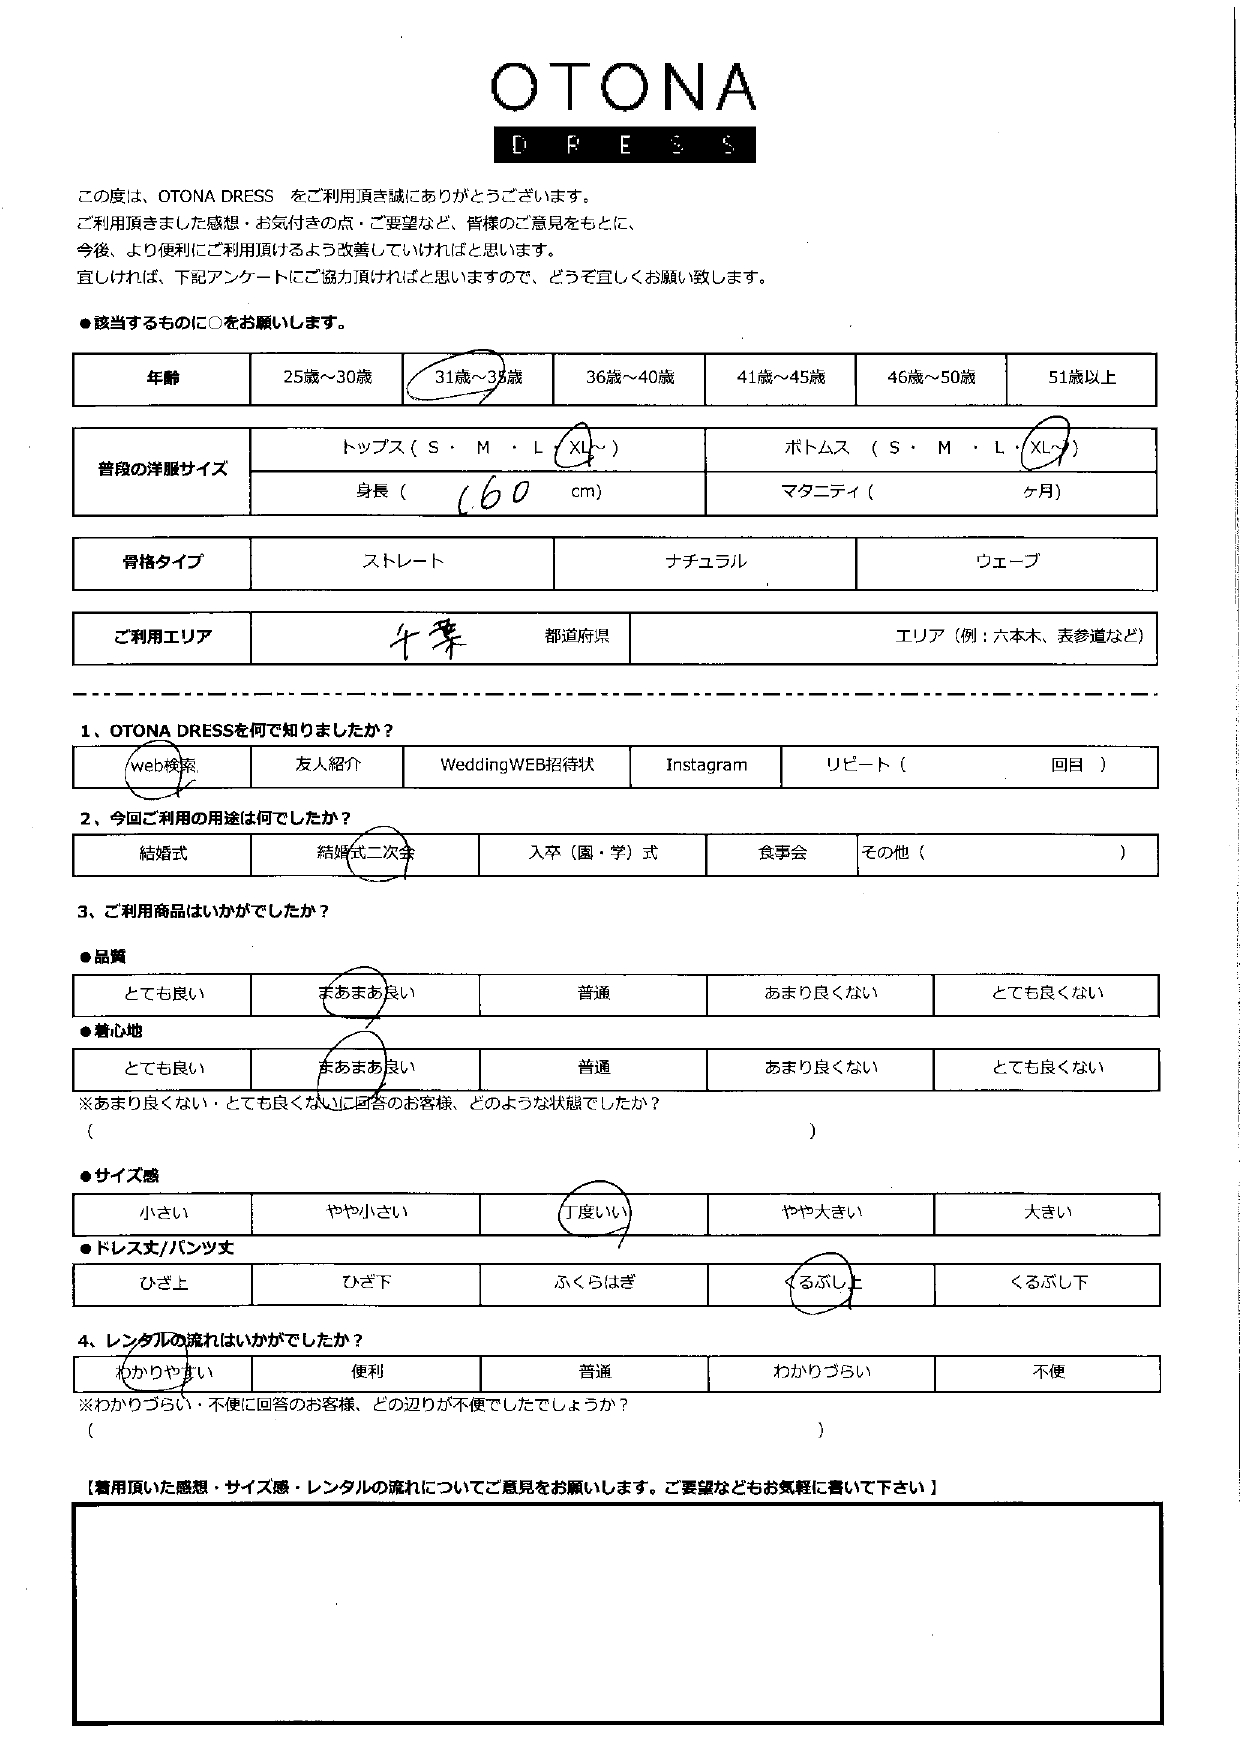 OTONA
DRESS
この度は、OTONA DRESS　をご利用頂き誠にありがとうございます。
ご利用頂きました感想・お気付きの点・ご要望など、皆様のご意見をもとに、
今後、より便利にご利用頂けるよう改善していければと思います。
宜しければ、下記アンケートにご協力頂ければと思いますので、どうぞ宜しくお願い致します。
●該当するものに○をお願いします。
年齢 25歳～30歳 31歳～35歳 36歳～40歳 41歳～45歳 46歳～50歳 51歳以上
普段の洋服サイズ トップス ( S ・ M ・ L ・ XL～ ) ボトムス ( S ・ M ・ L ・ XL～ )
身長 ( 160 cm) マタニティ ( ヶ月)
骨格タイプ ストレート ナチュラル ウェーブ
ご利用エリア 千葉 都道府県 エリア（例：六本木、表参道など）
1、OTONA DRESSを何で知りましたか？
web検索 友人紹介 WeddingWEB招待状 Instagram リピート（ 回目 ）
2、今回ご利用の用途は何でしたか？
結婚式 結婚式二次会 入卒（園・学）式 食事会 その他（ ）
3、ご利用商品はいかがでしたか？
●品質
とても良い まあまあ良い 普通 あまり良くない とても良くない
●着心地
とても良い まあまあ良い 普通 あまり良くない とても良くない
※あまり良くない・とても良くないに回答のお客様、どのような状態でしたか？
( )
●サイズ感
小さい やや小さい 丁度いい やや大きい 大きい
●ドレス丈/パンツ丈
ひざ上 ひざ下 ふくらはぎ くるぶし上 くるぶし下
4、レンタルの流れはいかがでしたか？
わかりやすい 便利 普通 わかりづらい 不便
※わかりづらい・不便に回答のお客様、どの辺りが不便でしたでしょうか？
( )
【着用頂いた感想・サイズ感・レンタルの流れについてご意見をお願いします。ご要望などもお気軽に書いて下さい 】